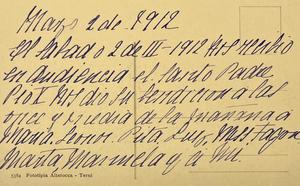 Marzo 2 de 1912
El Sabado 2 de III - 1912 nos recibio
en audiencia el Santo Padre
Pio X nos dio su bendicion a las
once y media de la mañana a
Maria, Leonor, Pita, Luz,
Marta Manuela y a mi.
5382 Fototipia Alterocca - Terni